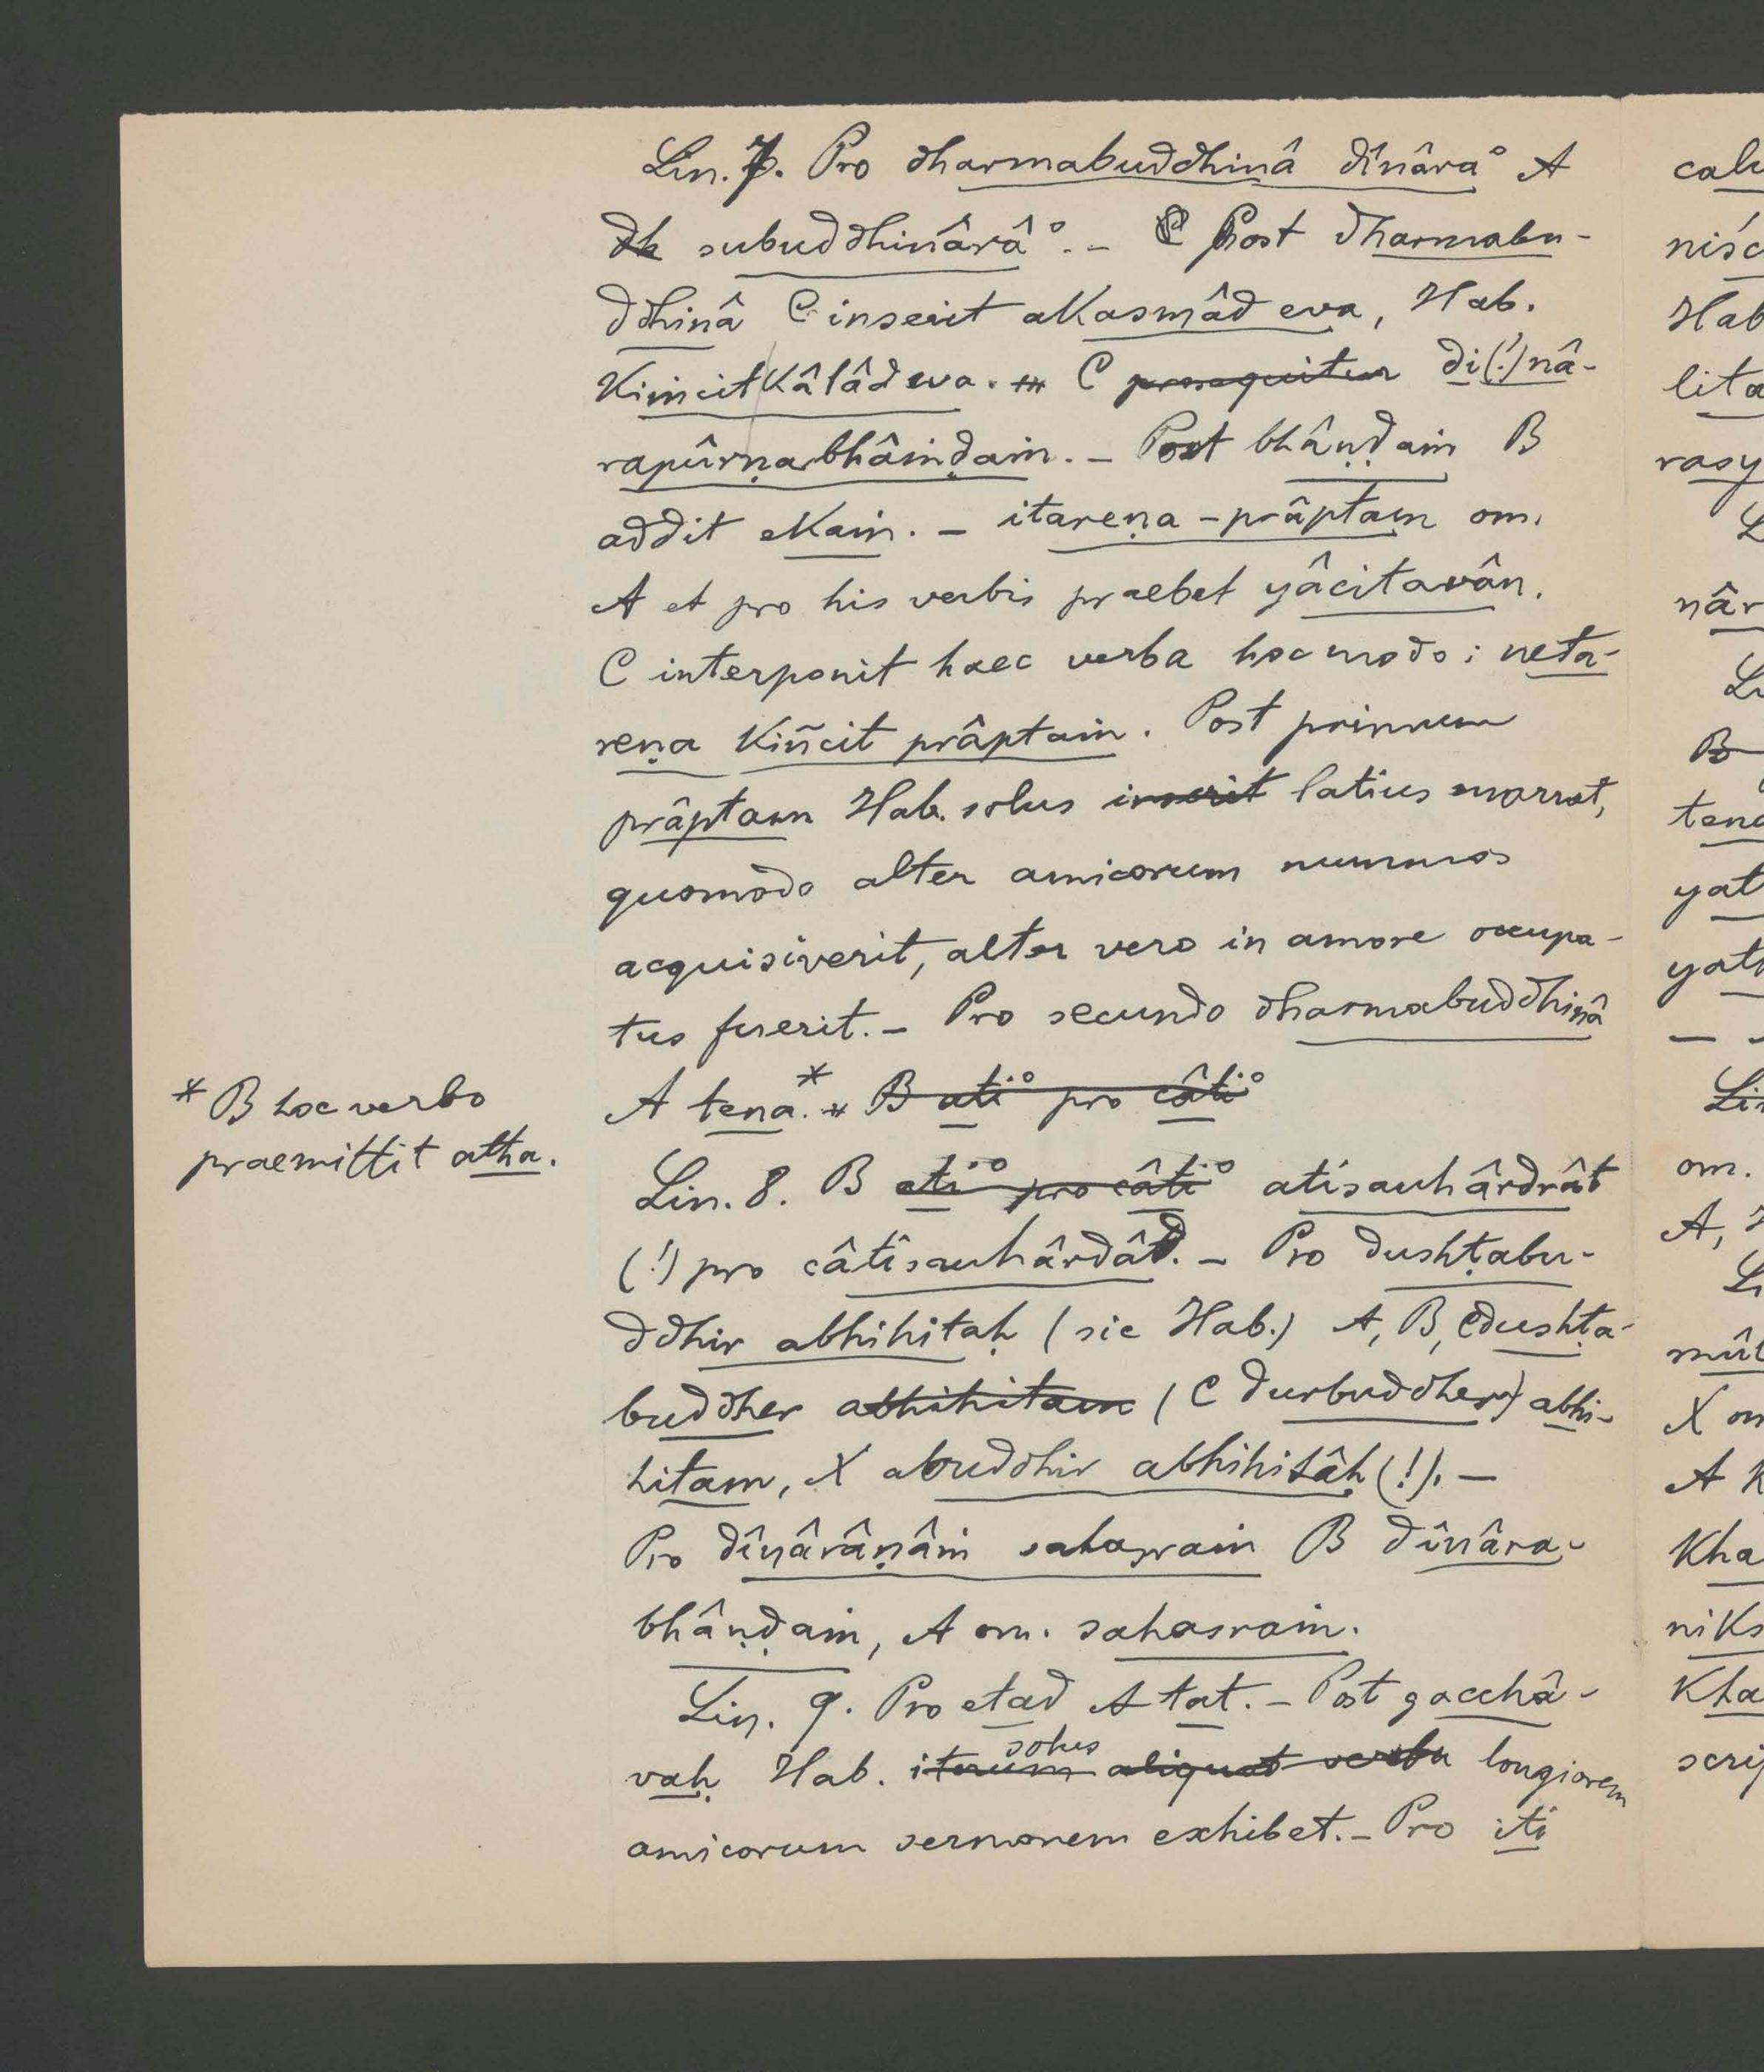 Lin. 7. Pro dharmabuddhinâ dînâra° A
dh subuddhinârâ°. – C Post dharmabu-
ddhinâ C inserit akasmâd eva, Hab.
kiṁcit kâlâd eva. – C prosequitur di(!)nâ-
rapûrṇabhâṁḍaṁ. – Post bhâṇḍaṁ B
addit ekaṁ. – itareṇa – prâptaṁ om.
A et pro his verbis praebet yâcitavân.
C interponit haec verba hoc modo: neta-
reṇa kiñcit prâptaṁ. Post primum
prâptam Hab. solus inserit latius narrat,
quomodo alter amicorum nummos
acquisiverit, alter vero in amore occupa-
tus fuerit. – Pro secundo dharmabuddhinâ
A tena.* B ati° pro câti°
* B hoc verbo
praemittit atha.
Lin. 8. B ati° pro câti° atisauhârdrât
(!) pro câtisauhârdâd. – Pro dushṭabu-
ddhir abhihitaḥ (sic Hab.) A, B, C dushṭa-
buddher abhihitam (C durbuddher) abhi-
hitam, X abuddhir abhihitâḥ (!). –
Pro dînârâṇâṁ sahasraṁ B dînâra-
bhâṇḍaṁ, A om. sahasraṁ.
Lin. 9. Pro etad A tat. – Post gacchâ-
solus
vaḥ Hab. iterum aliquot verba longiorem
amicorum sermonem exhibet. – Pro iti
calu
niśc
Hab
lita
rasy
L
nâr
Li
B
tena
yat
yath
Lin
om.
A, H
Li
mût
X om
A k
kha
niks
kha
scrip